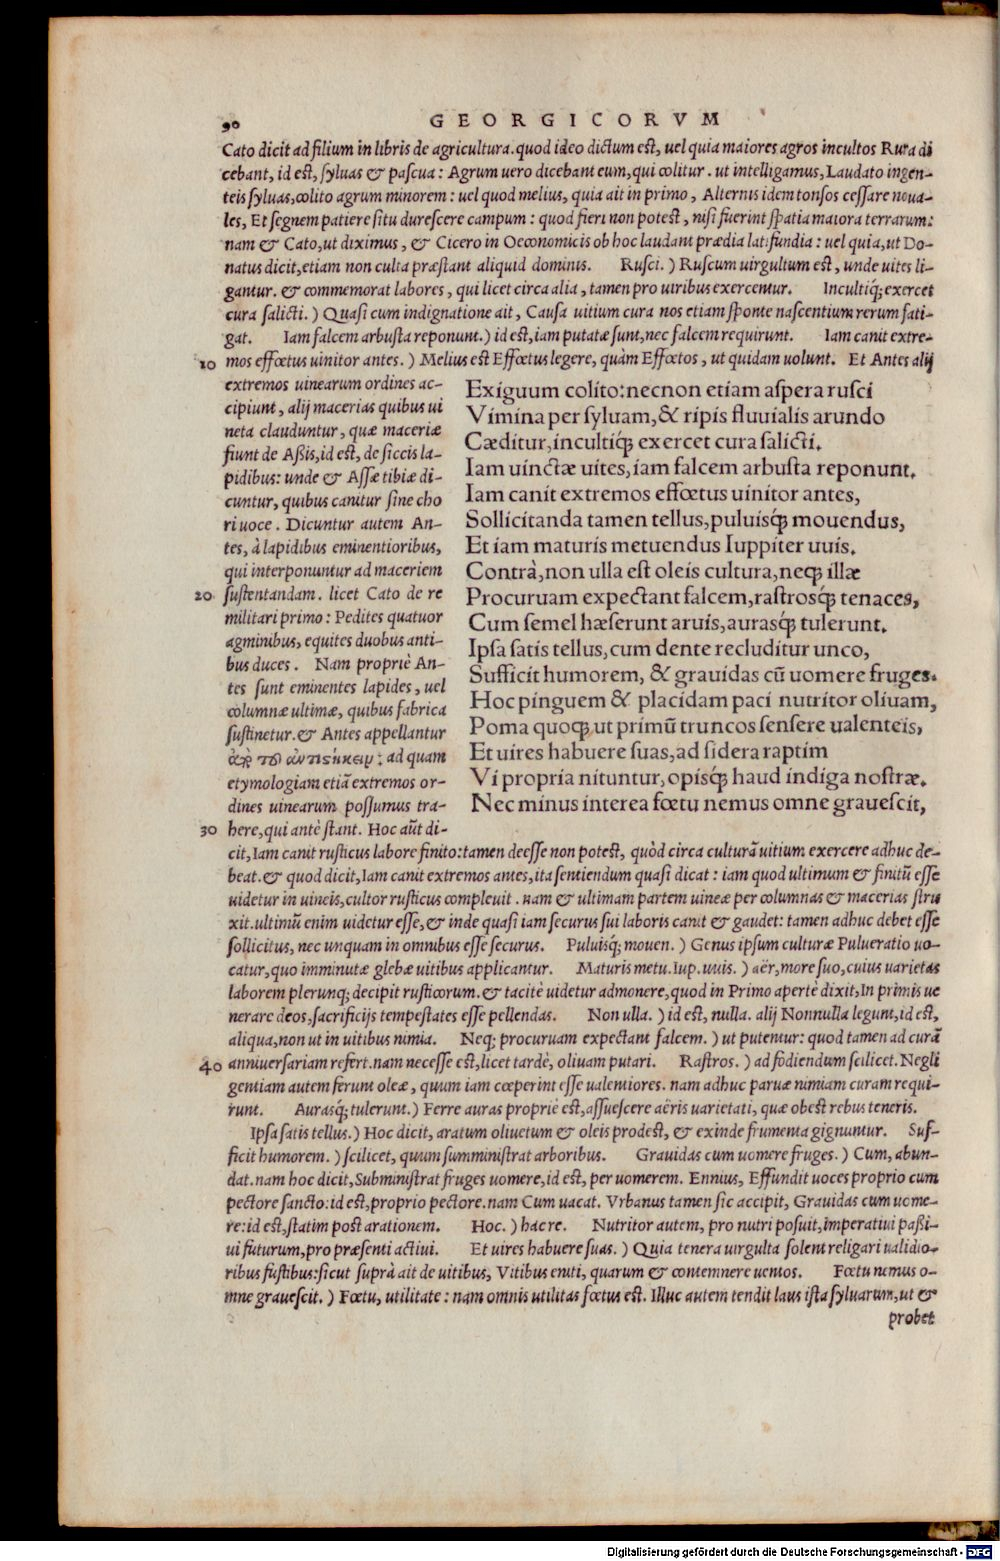 90 GEORGICORVM
Cato dicit ad filium in libris de agricultura.quod ideo dictum est, uel quia maiores agros incultos Rura di
cebant, id est, syluas & pascua : Agrum uero dicebant eum, qui colitur . ut intelligamus, Laudato ingen-
teis syluas, colito agrum minorem : uel quod melius, quia ait in primo , Alternis idem tonsos cessare noua-
les, Et segnem patiere situ durescere campum : quod fieri non potest , nisi fuerint spatia maiora terrarum:
nam & Cato, ut diximus , & Cicero in Oeconomicis ob hoc laudant prædia latifundia : uel quia, ut Do-
natus dicit, etiam non culta præstant aliquid dominis. Rusci. ) Ruscum uirgultum est , unde uites li-
gantur. & commemorat labores , qui licet circa alia , tamen pro uiribus exercentur. Incultiq́; exercet
cura salicti. ) Quasi cum indignatione ait , Causa uitium cura nos etiam sponte nascentium rerum fati-
gat. Iam falcem arbusta reponunt.) id est, iam putatæ sunt, nec falcem requirunt. Iam canit extre-
10 mos effœtus uinitor antes. ) Melius est Effœtus legere, quàm Effœtos , ut quidam uolunt. Et Antes alij
extremos uinearum ordines ac-
cipiunt , alij macerias quibus ui
neta clauduntur , quæ maceriæ
fiunt de Aßis, id est, de siccis la-
pidibus: unde & Assæ tibiæ di-
cuntur, quibus canitur sine cho
ri uoce . Dicuntur autem An-
tes, à lapidibus eminentioribus,
qui interponuntur ad maceriem
20 sustentandam. licet Cato de re
militari primo : Pedites quatuor
agminibus, equites duobus anti-
bus duces . Nam propriè An-
tes sunt eminentes lapides , uel
columnæ ultimæ, quibus fabrica
sustinetur. & Antes appellantur
ἀπὸ τοῦ ἀντιστήκειν : ad quam
etymologiam etiā extremos or-
dines uinearum possumus tra-
30 here, qui antè stant. Hoc aūt di-
Exiguum colito: necnon etiam aspera rusci
Vimina per syluam, & ripis fluuialis arundo
Cæditur, incultiq́; exercet cura salicti.
Iam uinctæ uites, iam falcem arbusta reponunt.
Iam canit extremos effœtus uinitor antes,
Sollicitanda tamen tellus, puluisq́; mouendus,
Et iam maturis metuendus Iuppiter uuis.
Contrà, non ulla est oleis cultura, neq; illæ
Procuruam expectant falcem, rastrosq́; tenaces,
Cum semel hæserunt aruis, aurasq́; tulerunt.
Ipsa satis tellus, cum dente recluditur unco,
Sufficit humorem, & grauidas cū uomere fruges.
Hoc pinguem & placidam paci nutritor oliuam,
Poma quoq; ut primū truncos sensere ualenteis,
Et uires habuere suas, ad sidera raptim
Vi propria nituntur, opisq́; haud indiga nostræ.
Nec minus interea fœtu nemus omne grauescit,
cit, Iam canit rusticus labore finito: tamen deesse non potest, quòd circa culturā uitium exercere adhuc de-
beat. & quod dicit, Iam canit extremos antes, ita sentiendum quasi dicat : iam quod ultimum & finitū esse
uidetur in uineis, cultor rusticus compleuit . nam & ultimam partem uineæ per columnas & macerias stru
xit. ultimū enim uidetur esse, & inde quasi iam securus sui laboris canit & gaudet: tamen adhuc debet esse
sollicitus, nec unquam in omnibus esse securus. Puluisq́; mouen. ) Genus ipsum culturæ Pulueratio uo-
catur, quo imminutæ glebæ uitibus applicantur. Maturis metu. Iup. uuis. ) aër, more suo, cuius uarietas
laborem plerunq; decipit rusticorum. & tacitè uidetur admonere, quod in Primo apertè dixit, In primis ue
nerare deos, sacrificijs tempestates esse pellendas. Non ulla. ) id est, nulla. alij Nonnulla legunt, id est,
aliqua, non ut in uitibus nimia. Neq; procuruam expectant falcem. ) ut putentur: quod tamen ad curā
40 anniuersariam refert. nam necesse est, licet tardè, oliuam putari. Rastros. ) ad fodiendum scilicet. Negli
gentiam autem ferunt oleæ , quum iam cœperint esse ualentiores. nam adhuc paruæ nimiam curam requi-
runt. Aurasq́; tulerunt.) Ferre auras propriè est, assuescere aëris uarietati, quæ obest rebus teneris.
Ipsa satis tellus.) Hoc dicit, aratum oliuetum & oleis prodest, & exinde frumenta gignuntur. Suf-
ficit humorem. ) scilicet, quum summinístrat arboribus. Grauidas cum uomere fruges. ) Cum, abun-
dat. nam hoc dicit, Subministrat fruges uomere, id est, per uomerem. Ennius, Effundit uoces proprio cum
pectore sancto: id est, proprio pectore. nam Cum uacat. Vrbanus tamen sic accipit, Grauidas cum uome-
re: id est, statim post arationem. Hoc. ) hac re. Nutritor autem, pro nutri posuit, imperatiui paßi-
ui futurum, pro præsenti actiui. Et uires habuere suas. ) Quia tenera uirgulta solent religari ualidio-
ribus fustibus: sicut suprà ait de uitibus, Vitibus eniti, quarum & contemnere uentos. Fœtu nemus o-
mne grauescit. ) Fœtu, utilitate : nam omnis utilitas fœtus est. Illuc autem tendit laus ista syluarum, ut &
probet
Digitalisierung gefördert durch die Deutsche Forschungsgemeinschaft - DFG